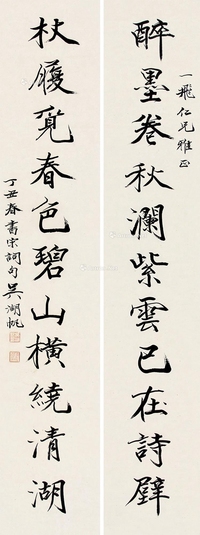 一飛仁兄雅正
醉墨卷秋瀾紫雲已在詩壁
杖履覓春色碧山橫繞清湖
丁丑春書宋詞句吳湖帆